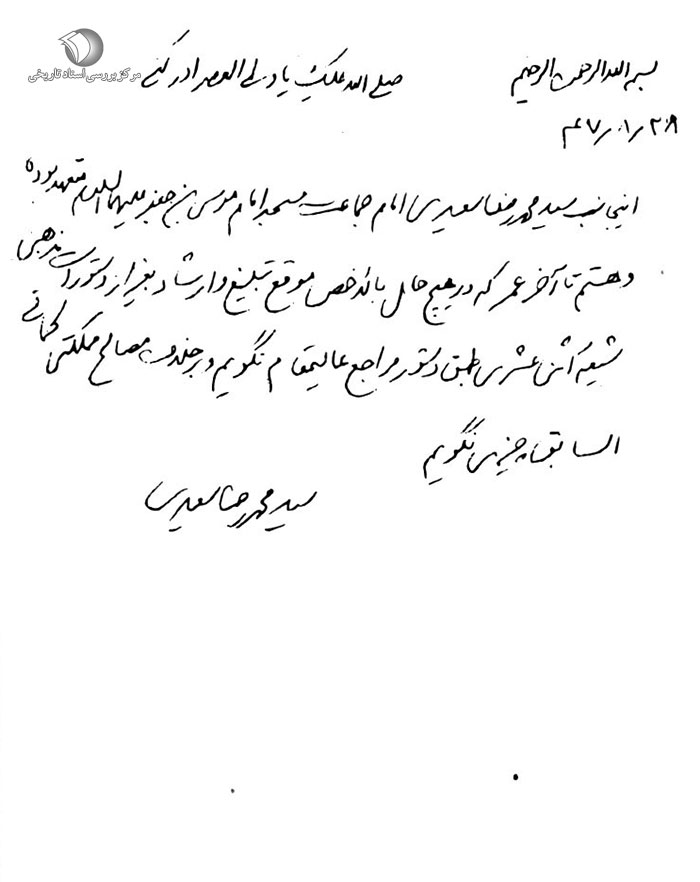 مرکز بررسی اسناد تاریخی
بسم الله الرحمن الرحیم صلی الله علیک یا ولی العصر ادرکنی
۴۷/۰۱/۲۸
اینجانب سید محمدرضا سعیدی امام جماعت مسجد امام موسی بن جعفر علیهما السلام متعهد بوده
و هستم تا آخر عمر که در هیچ حال بالاخص موقع تبلیغ و ارشاد بغیر از دستورات مذهبی
شیعه اثنی عشری طبق دستور مراجع عالیمقام نگویم و بر خلاف مصالح مملکتی کمافی
السابق چیزی نگویم
سید محمدرضا سعیدی